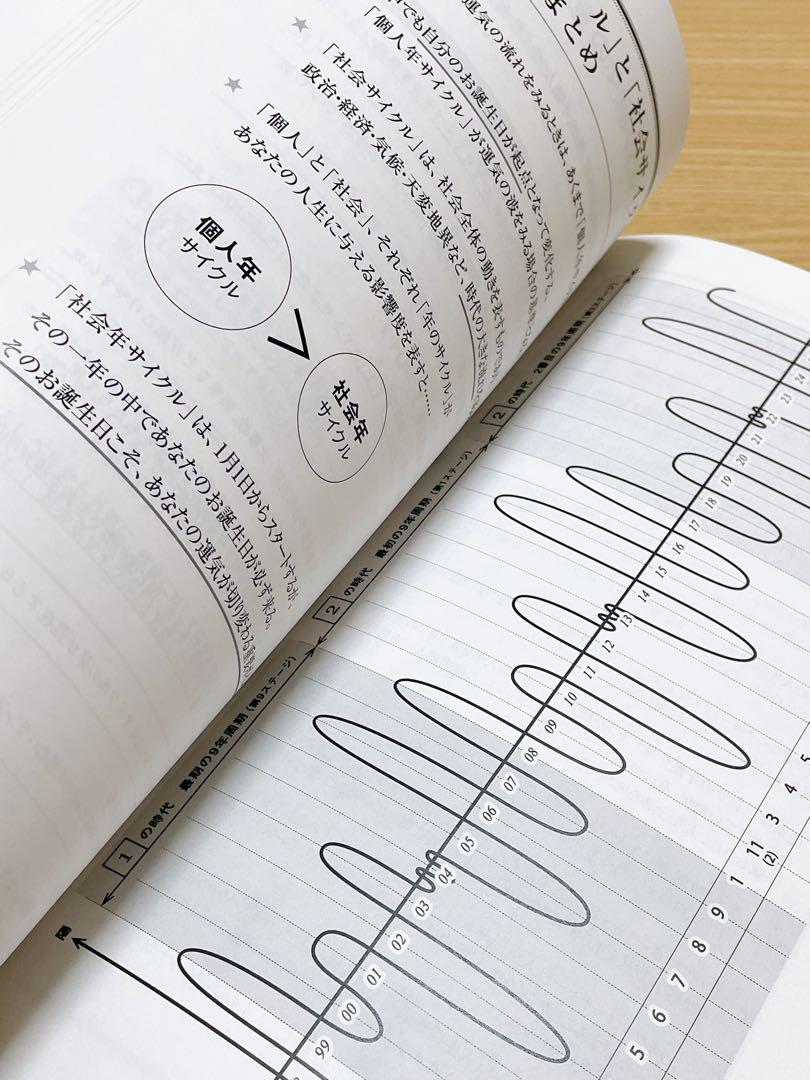 ル」と「社会サイ
まとめ
運気の流れをみるときは、あくまで「個人年
中でも自分のお誕生日が起点となって変化する。
「個人年サイクル」が運気の波をみる場合の
★
「社会サイクル」は、社会全体の動きを表すもの
政治・経済・気候・天変地異など、時代の大きな
★
「個人」と「社会」、それぞれ「年のサイクル」が
あなたの人生に与える影響度を表すと……
個人年
サイクル
>
社会年
サイクル
★
「社会年サイクル」は、1月1日からスタートするが、
その一年の中であなたのお誕生日が必ず来る。
そのお誕生日こそ、あなたの運気が切り変わる
1 の時代 最期の9年周期(第9ステージ)
2 の時代 最初の9年周期(第1ステージ)
2 の時代 2番目の9年周期(第2ステージ)
陽
99
00
01
02
03
04
05
06
07
08
09
10
11
12
13
14
15
16
17
18
19
20
21
22
23
24
5
6
7
8
9
1
11
(2)
3
4
5